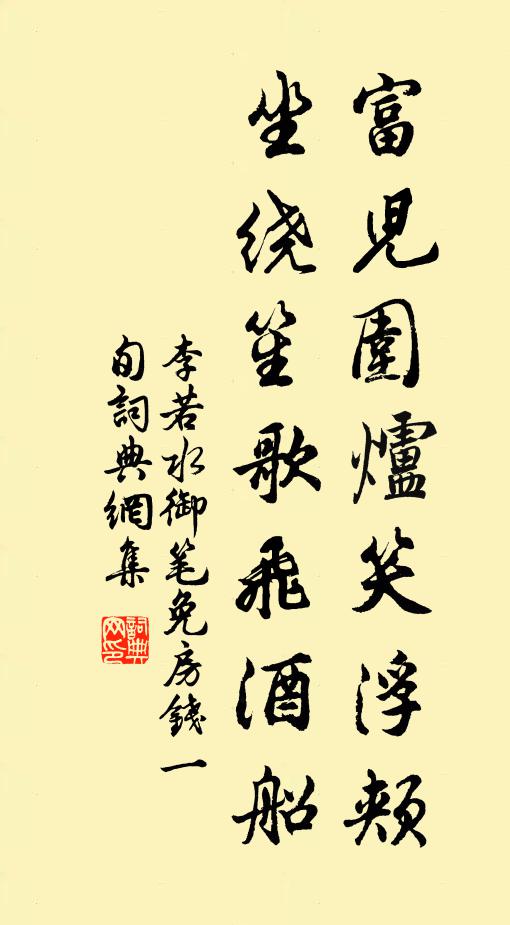 富児圍爐笑浮頰
坐绕笙歌飛酒船
李若水御笔免房錢一
句詞典網集
詞典
网印